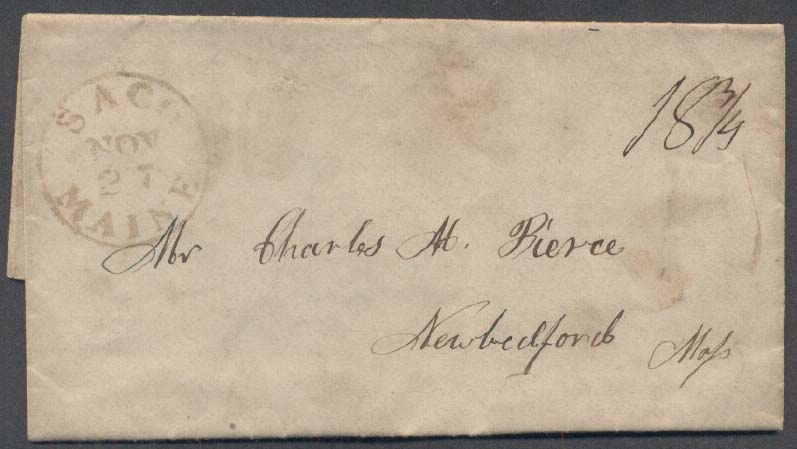 SACO
NOV
27
MAINE
18 3/4
Mr Charles H. Pierce
Newbedford Mass